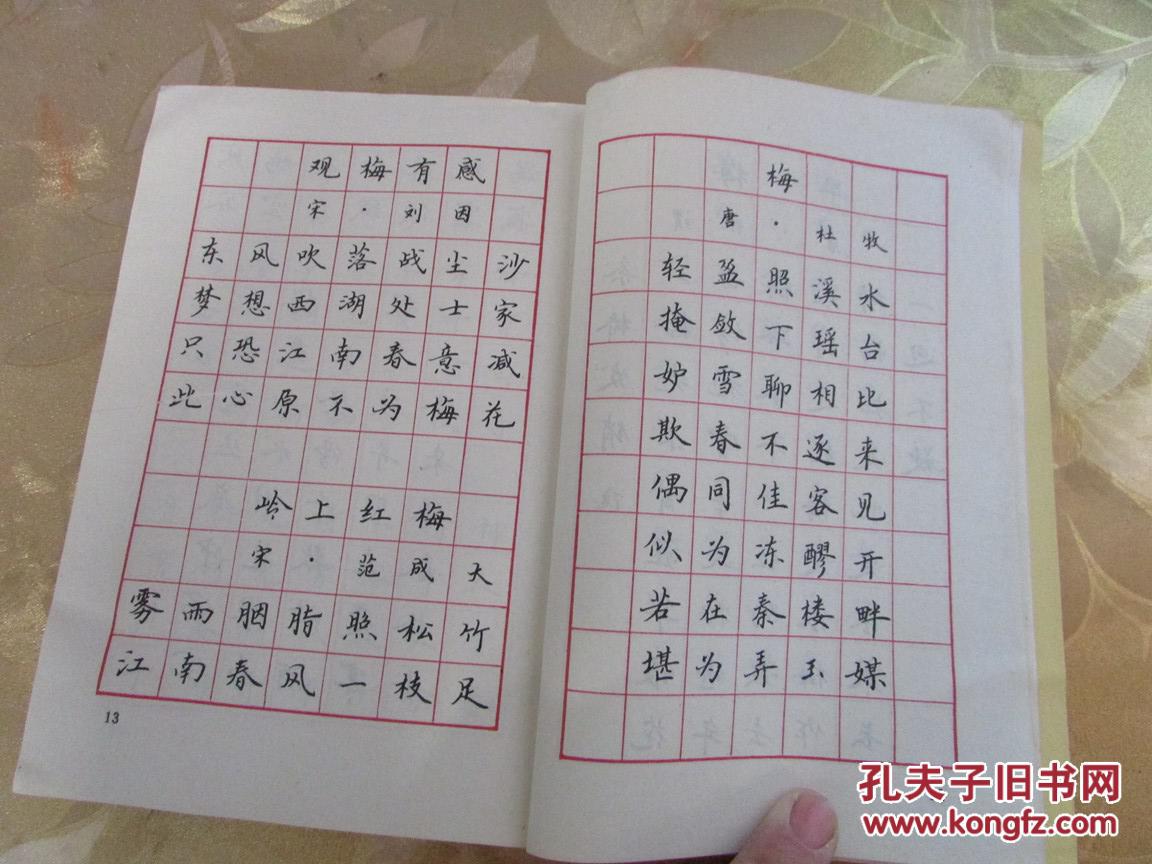 观梅有感
宋·刘因
东风吹落战尘沙
梦想西湖处士家
只恐江南春意减
此心原不为梅花
岭上红梅
宋·范成大
雾雨胭脂照松竹
江南春风一枝足
13
梅
唐·杜牧
轻盈照溪水
掩敛下瑶台
妒雪聊相比
欺春不逐来
偶同佳客见
似为冻醪开
若在秦楼畔
堪为弄玉媒
孔夫子旧书网
www.kongfz.com